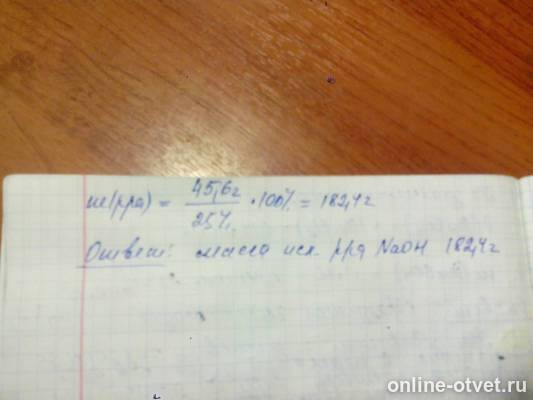 m(р-ра) = 45,6г / 25% · 100% = 182,4г
Ответ: масса исх. р-ра NaOH 182,4г
online-otvet.ru